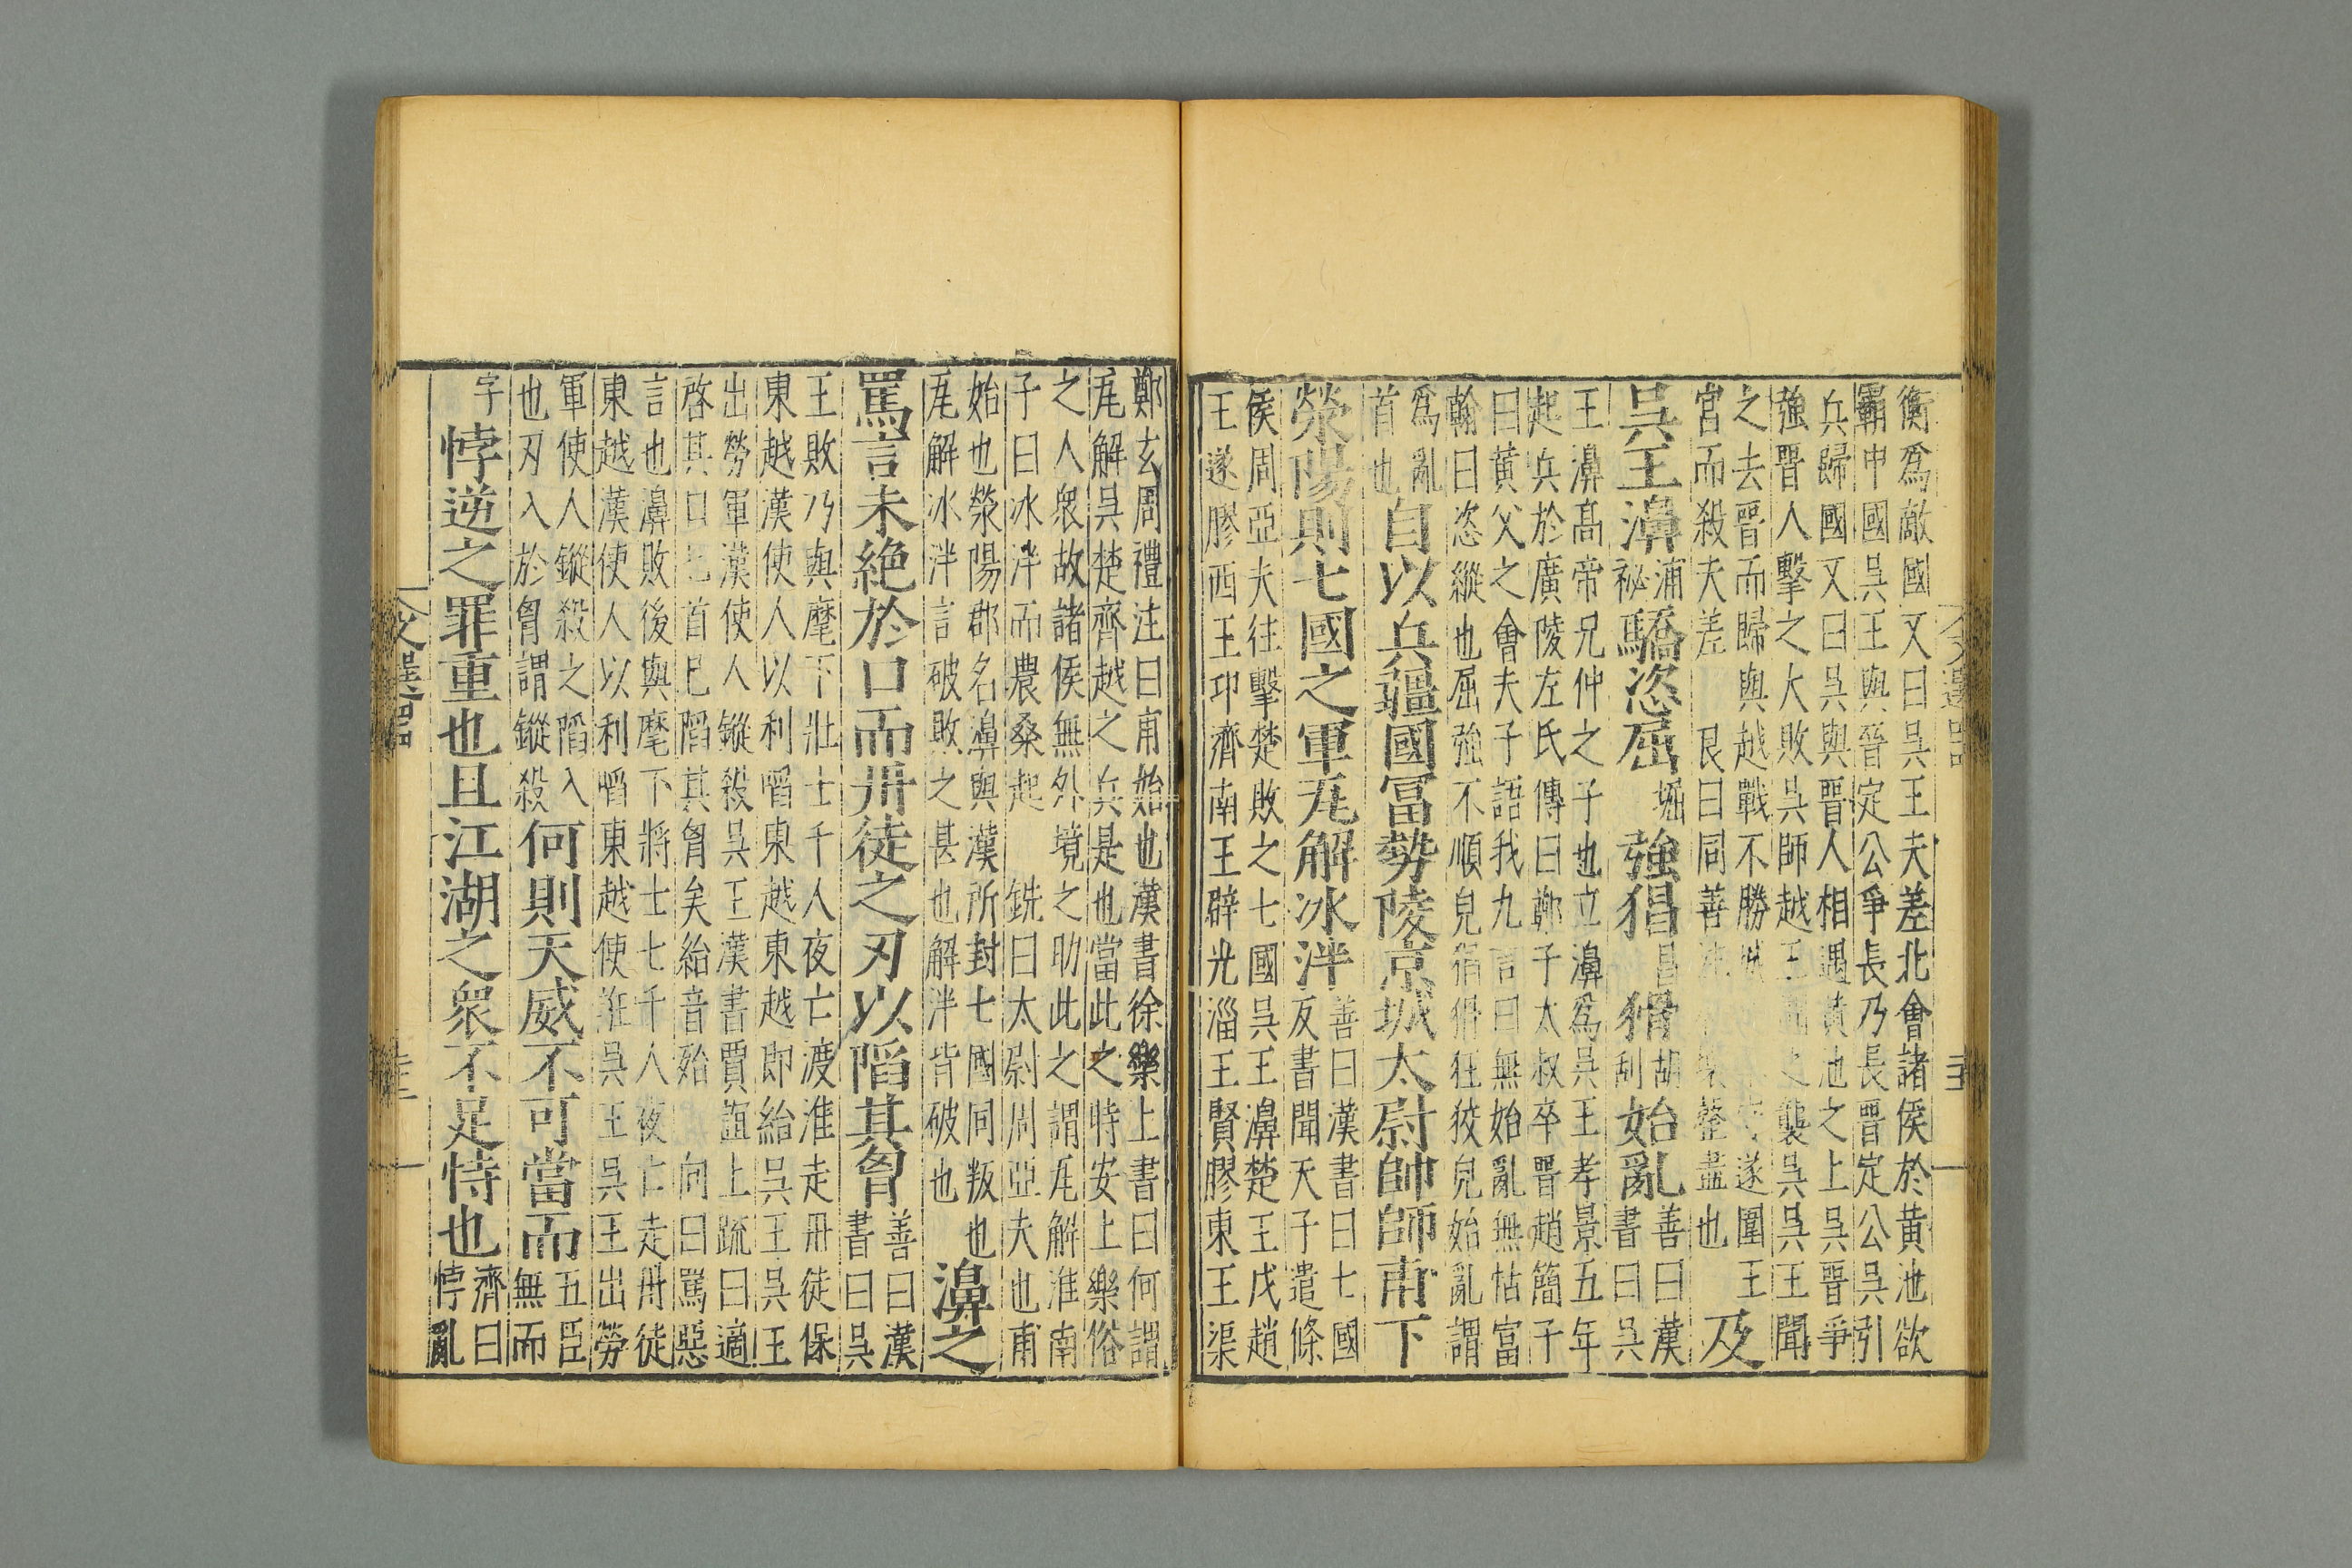 衡爲敵國又曰吳王夫差北會諸侯於黃池欲
霸中國吳王與晉定公爭長乃長晉定公吳引
兵歸國又曰吳與晉人相遇黃池之上吳晉爭
強晉人擊之大敗吳師越王聞之襲吳吳王聞
之去晉而歸與越戰不勝城遂圍王
宮而殺夫差 良曰同善注整盡也
及
吳王濞浦祕驕恣屈堀強猖昌猾胡刮始亂善曰漢書曰吳
王濞高帝兄仲之子也立濞爲吳王孝景五年
起兵於廣陵左氏傳曰鄭子太叔卒晉趙簡子
曰黃父之會夫子語我九言曰無始亂無怙富
翰曰恣縱也屈強不順皃猖猾狂狡皃始亂謂
爲亂首也自以兵疆國冨勢陵京城太尉帥師甫下
滎陽則七國之軍瓦解冰泮善曰漢書曰七國反書聞天子遣條
侯周亞夫往擊楚敗之七國吳王濞楚王戊趙
王遂膠西王卬濟南王辟光淄王賢膠東王渠
鄭玄周禮注曰甫始也漢書徐樂上書曰何謂
瓦解吳楚齊越之兵是也當此之時安上樂俗
之人衆故諸侯無外境之助此之謂瓦解淮南
子曰冰泮而農桑起 銑曰太尉周亞夫也甫
始也滎陽郡名濞與漢所封七國同叛也
瓦解冰泮言破敗之甚也解泮皆破也
濞之
罵言未絶於口而丹徒之刃以䧟其胷善曰漢書曰吳
王敗乃與麾下壯士千人夜亡渡淮走丹徒保
東越漢使人以利啗東越東越即紿吳王吳王
出勞軍漢使人鏦殺吳王漢書賈誼上疏曰適
啓其口匕首已䧟其胷矣紿音殆 向曰罵惡
言也濞敗後與麾下將士七千人夜亡走丹徒
東越漢使人以利啗東越使誑吳王吳王出勞
軍使人鏦殺之䧟入也刃入於胷謂鏦殺何則天威不可當而五臣無而
字悖逆之罪重也且江湖之衆不足恃也濟曰悖亂